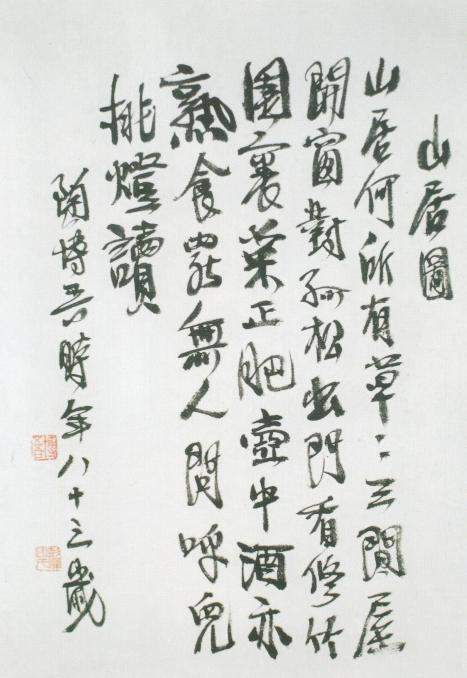 山居圖
山居何所有草〻三間屋
開窗對孤松出門看修竹
園裏菜正肥壺中酒亦
熟食罷無人問呼兒
挑燈讀
陶博吾時年八十三歲